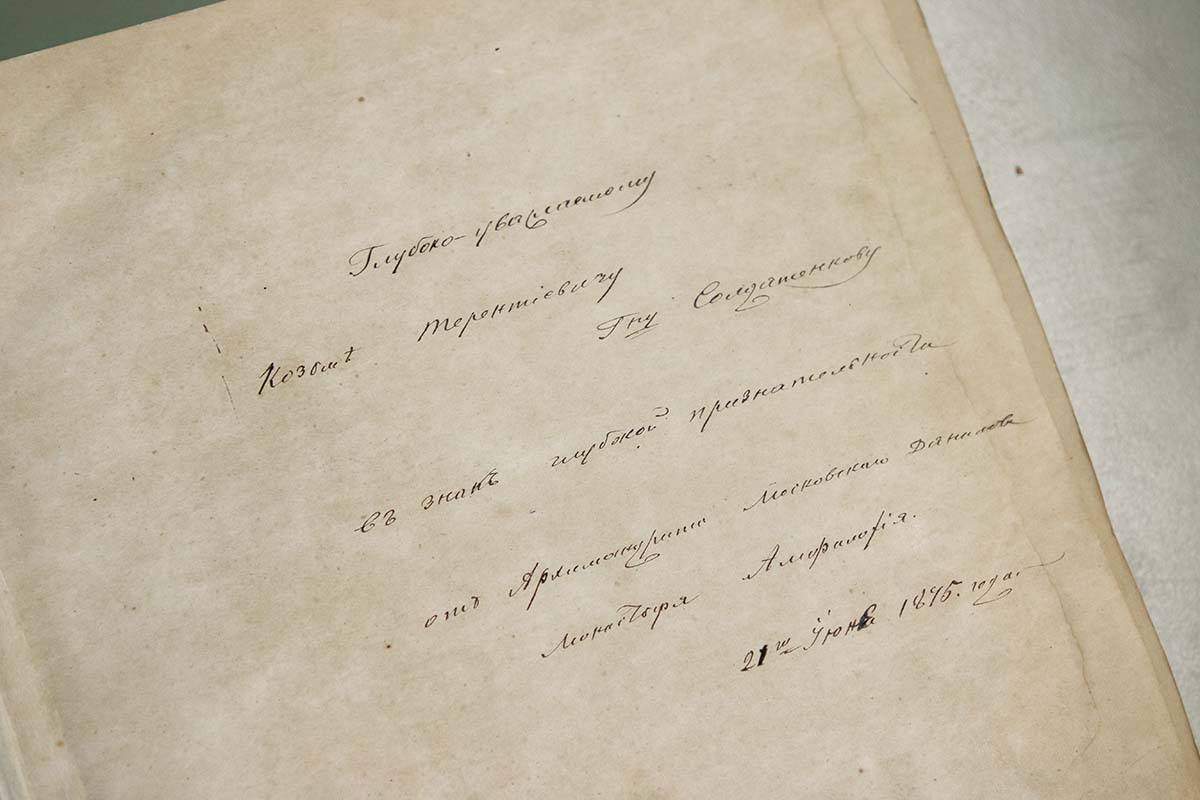 Глубоко-уважаемому
Козьмѣ Терентіевичу
Гну Солдатенкову
въ знакъ глубокой признательности
отъ Архимандрита Московскаго Данилова
монастыря Амфилохія.
21го Іюня 1875. года.